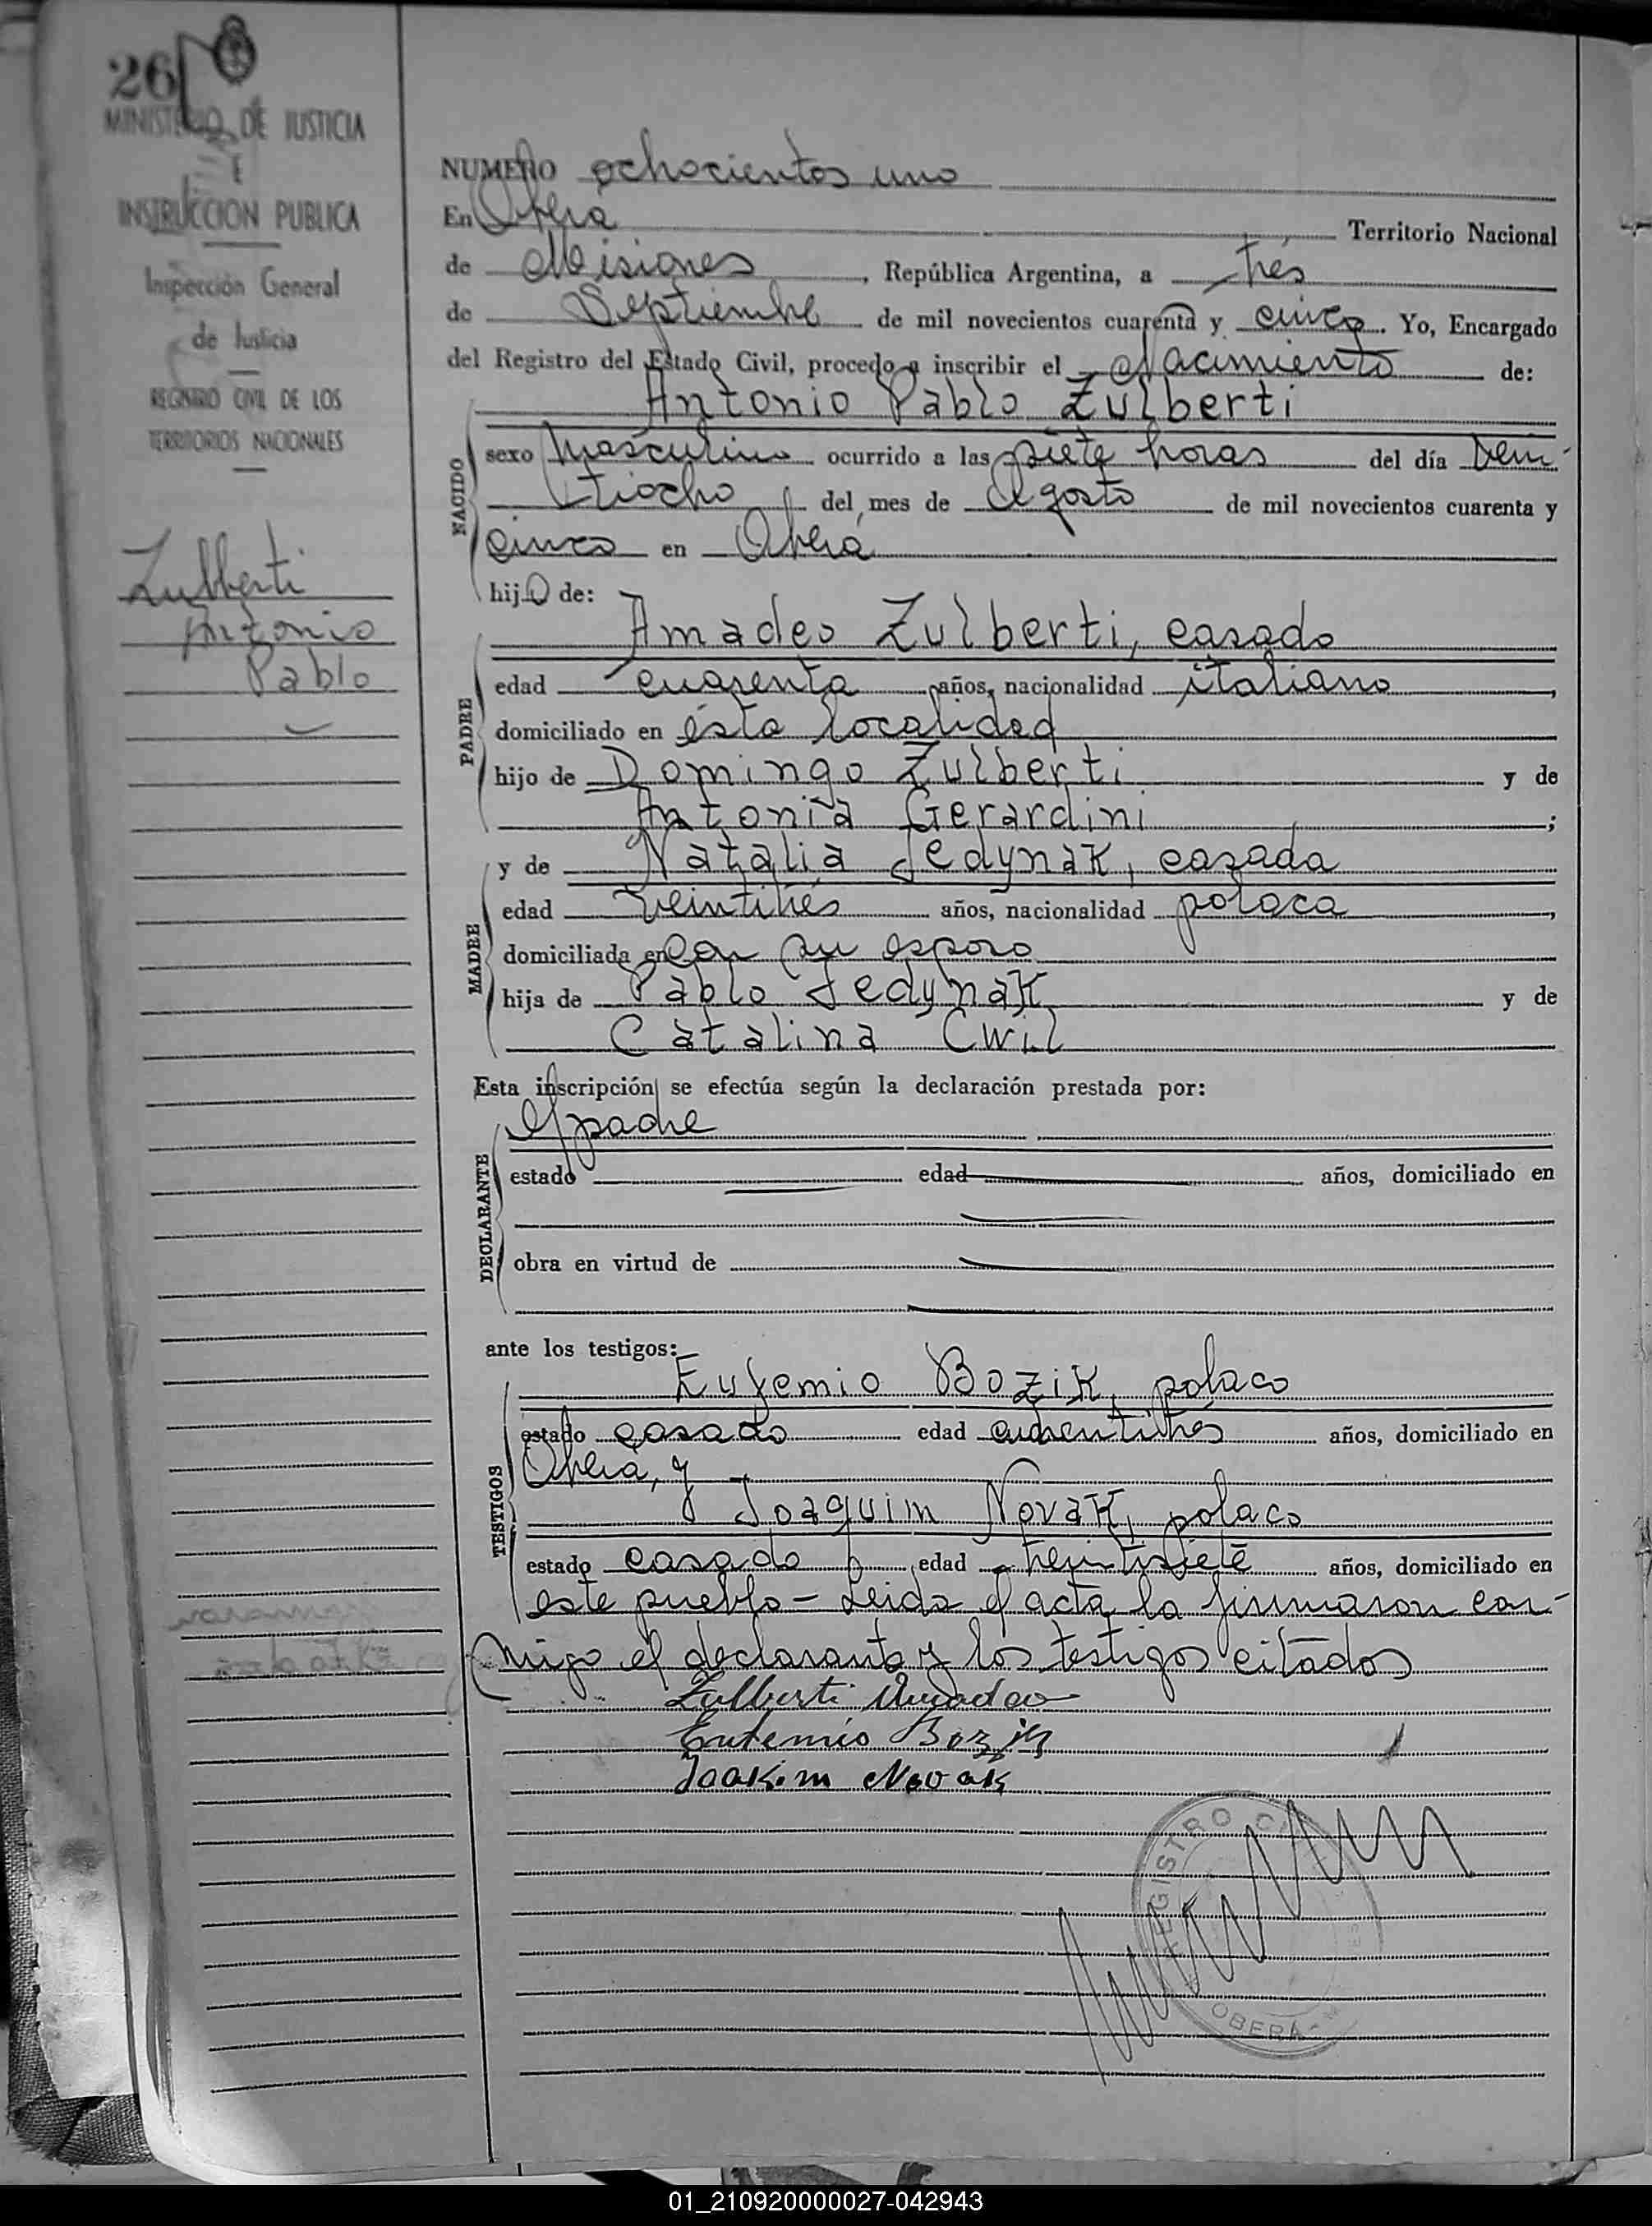 26
MINISTERIO DE JUSTICIA
E
INSTRUCCION PUBLICA
Inspección General
de Justicia
REGISTRO CIVIL DE LOS
TERRITORIOS NACIONALES
Zulberti
Antonio
Pablo
NUMERO ochocientos uno
En Oberá Territorio Nacional
de Misiones, República Argentina, a tres
de Septiembre de mil novecientos cuarenta y cinco. Yo, Encargado
del Registro del Estado Civil, procedo a inscribir el Nacimiento de:
Antonio Pablo Zulberti
NACIDO
sexo masculino ocurrido a las siete horas del día vein-
tiocho del mes de Agosto de mil novecientos cuarenta y
cinco en Oberá
hijo de:
PADRE
Amadeo Zulberti, casado
edad cuarenta años, nacionalidad italiano,
domiciliado en ésta localidad
hijo de Domingo Zulberti y de
Antonia Gerardini;
MADRE
y de Natalia Jedynak, casada
edad veintitrés años, nacionalidad polaca,
domiciliada en con su esposo
hija de Pablo Jedynak y de
Catalina Cwil
Esta inscripción se efectúa según la declaración prestada por:
DECLARANTE
el padre
estado edad años, domiciliado en
obra en virtud de
ante los testigos:
TESTIGOS
Eufemio Bozik, polaco
estado casado edad años, domiciliado en
Oberá, y
Joaquim Novak, polaco
estado casado edad años, domiciliado en
este pueblo - Leida el acta la firmaron con-
migo el declarante y los testigos citados
Zulberti Amadeo
Eutemio Bozik
Joakim Novak
REGISTRO CI
OBERÁ -
01_210920000027-042943